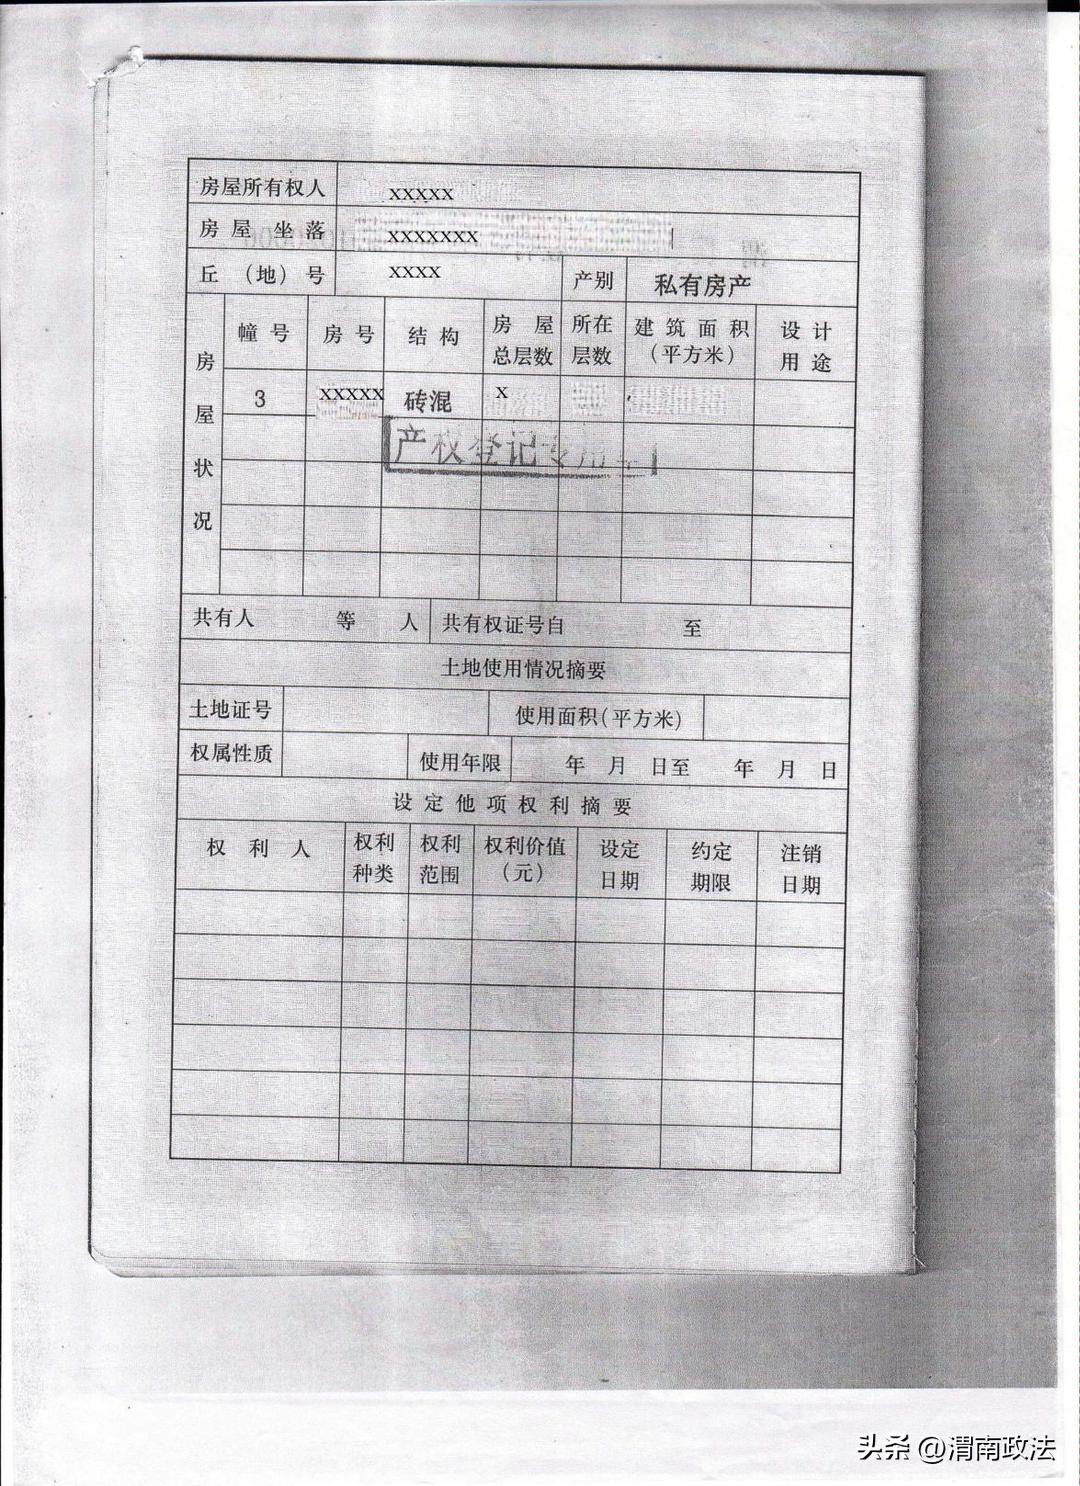 房屋所有权人 xxxxx
房屋坐落 xxxxxxx
丘（地）号 xxxx 产别 私有房产
房屋状况
幢号 房号 结构 房屋总层数 所在层数 建筑面积（平方米） 设计用途
3 xxxxx 砖混 x
产权登记专用
共有人 等 人 共有权证号自 至
土地使用情况摘要
土地证号 使用面积(平方米)
权属性质 使用年限 年 月 日至 年 月 日
设定他项权利摘要
权利人 权利种类 权利范围 权利价值（元） 设定日期 约定期限 注销日期
头条 @渭南政法